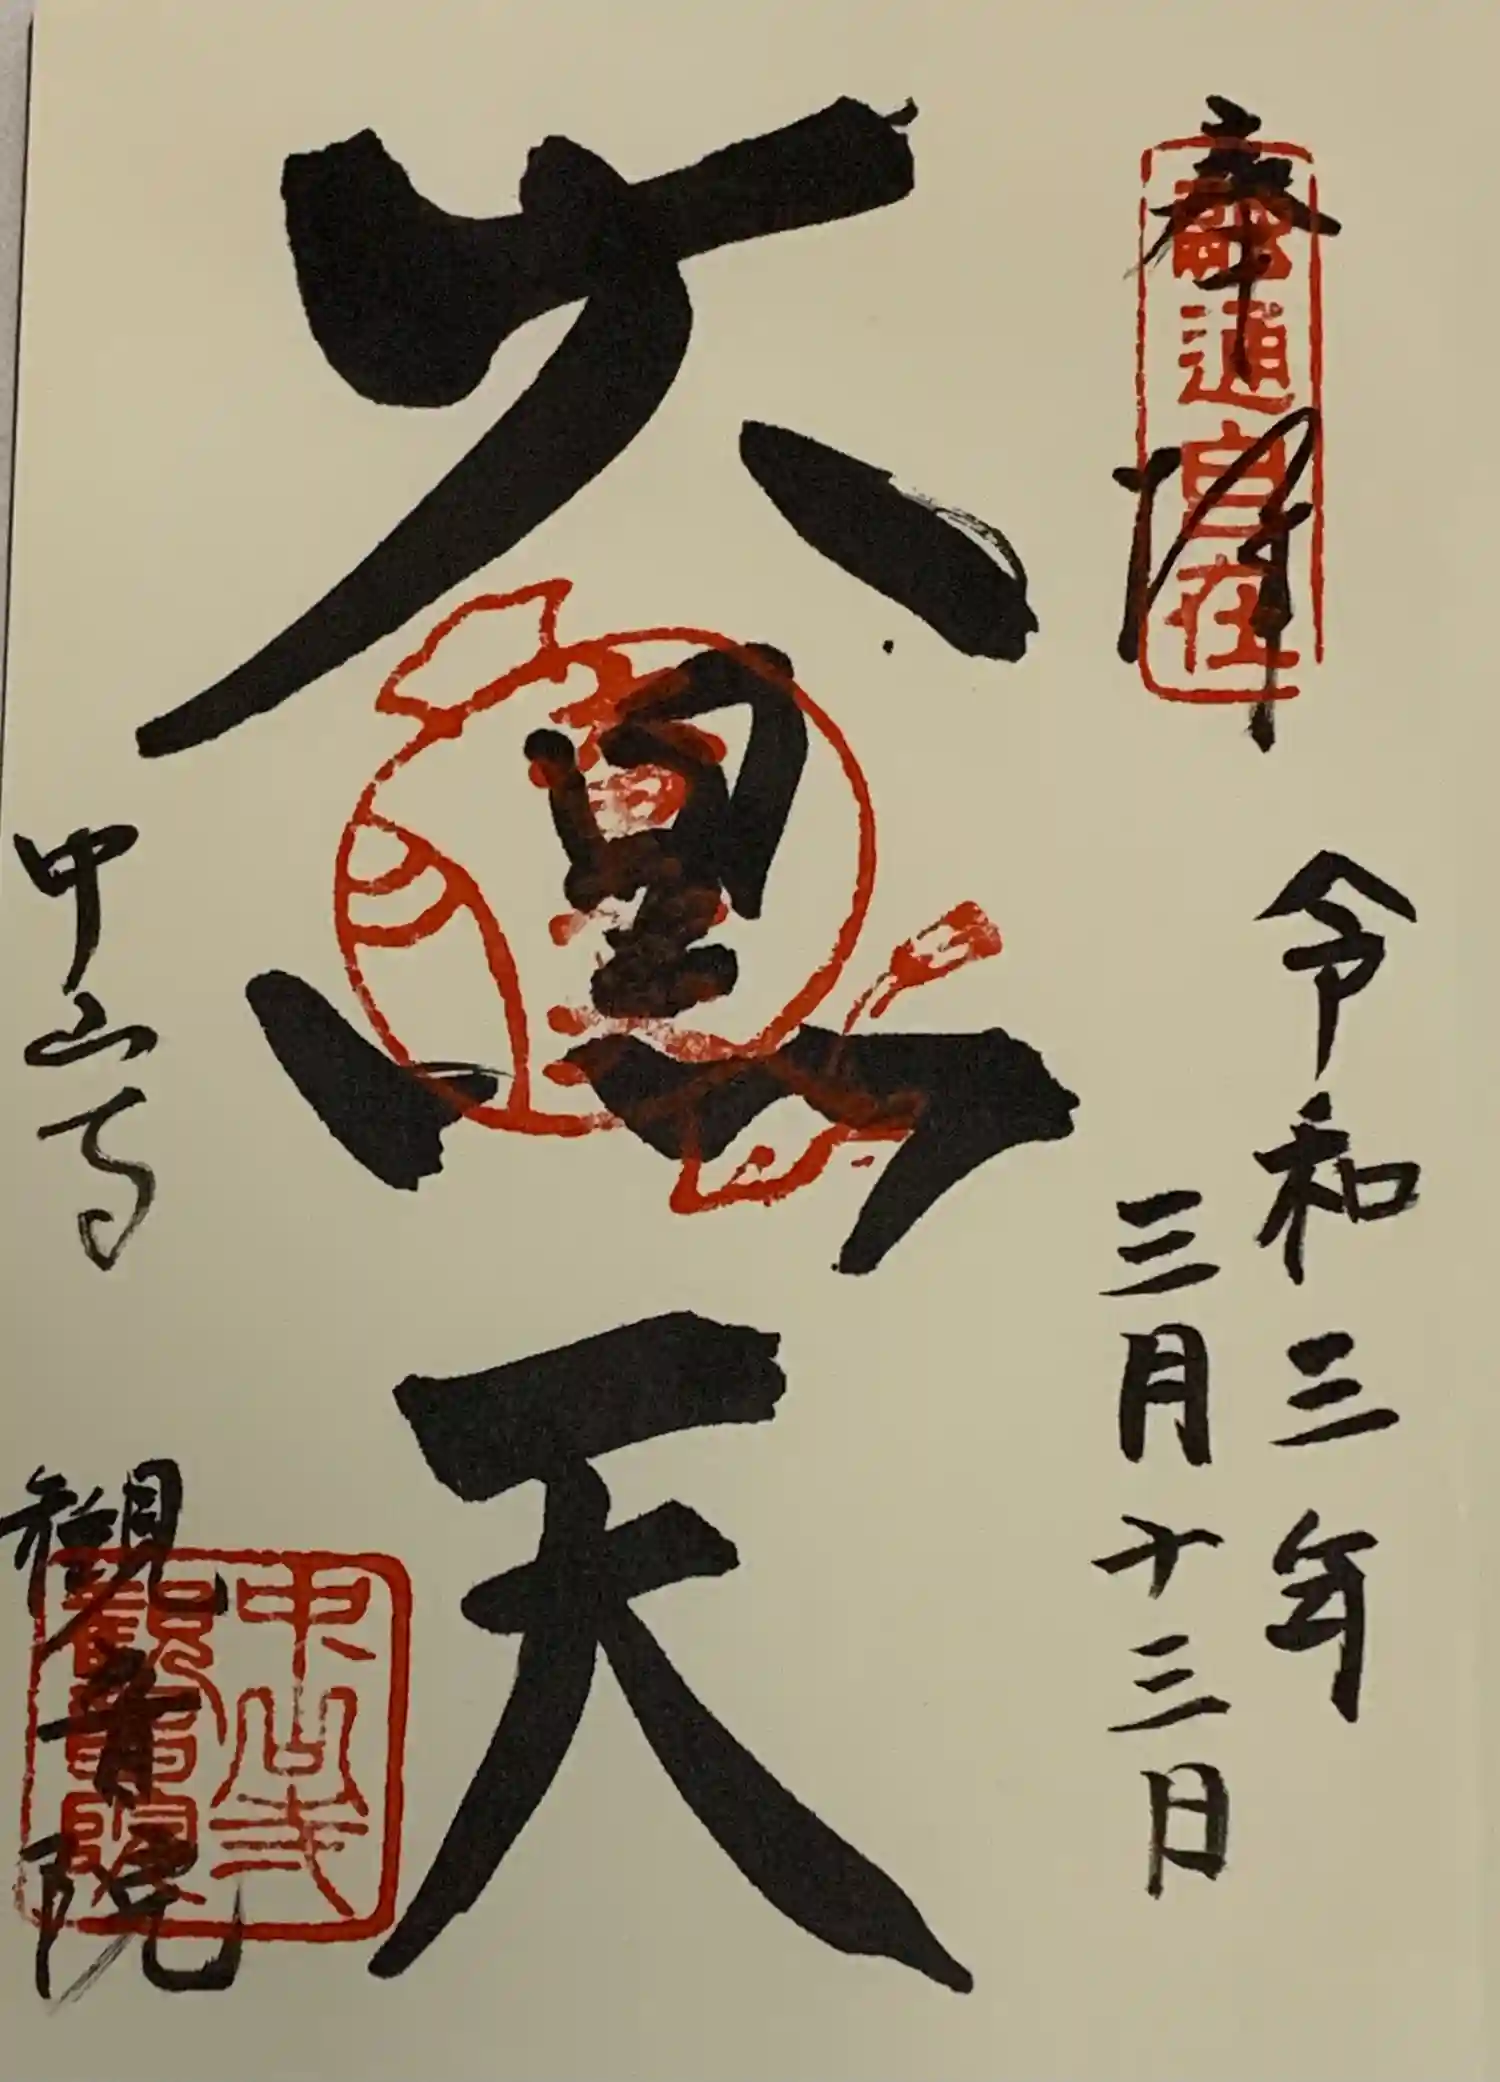 奉拝
融通自在
令和三年
三月十三日
大黒天
中山寺
観音院
中山寺
観音院